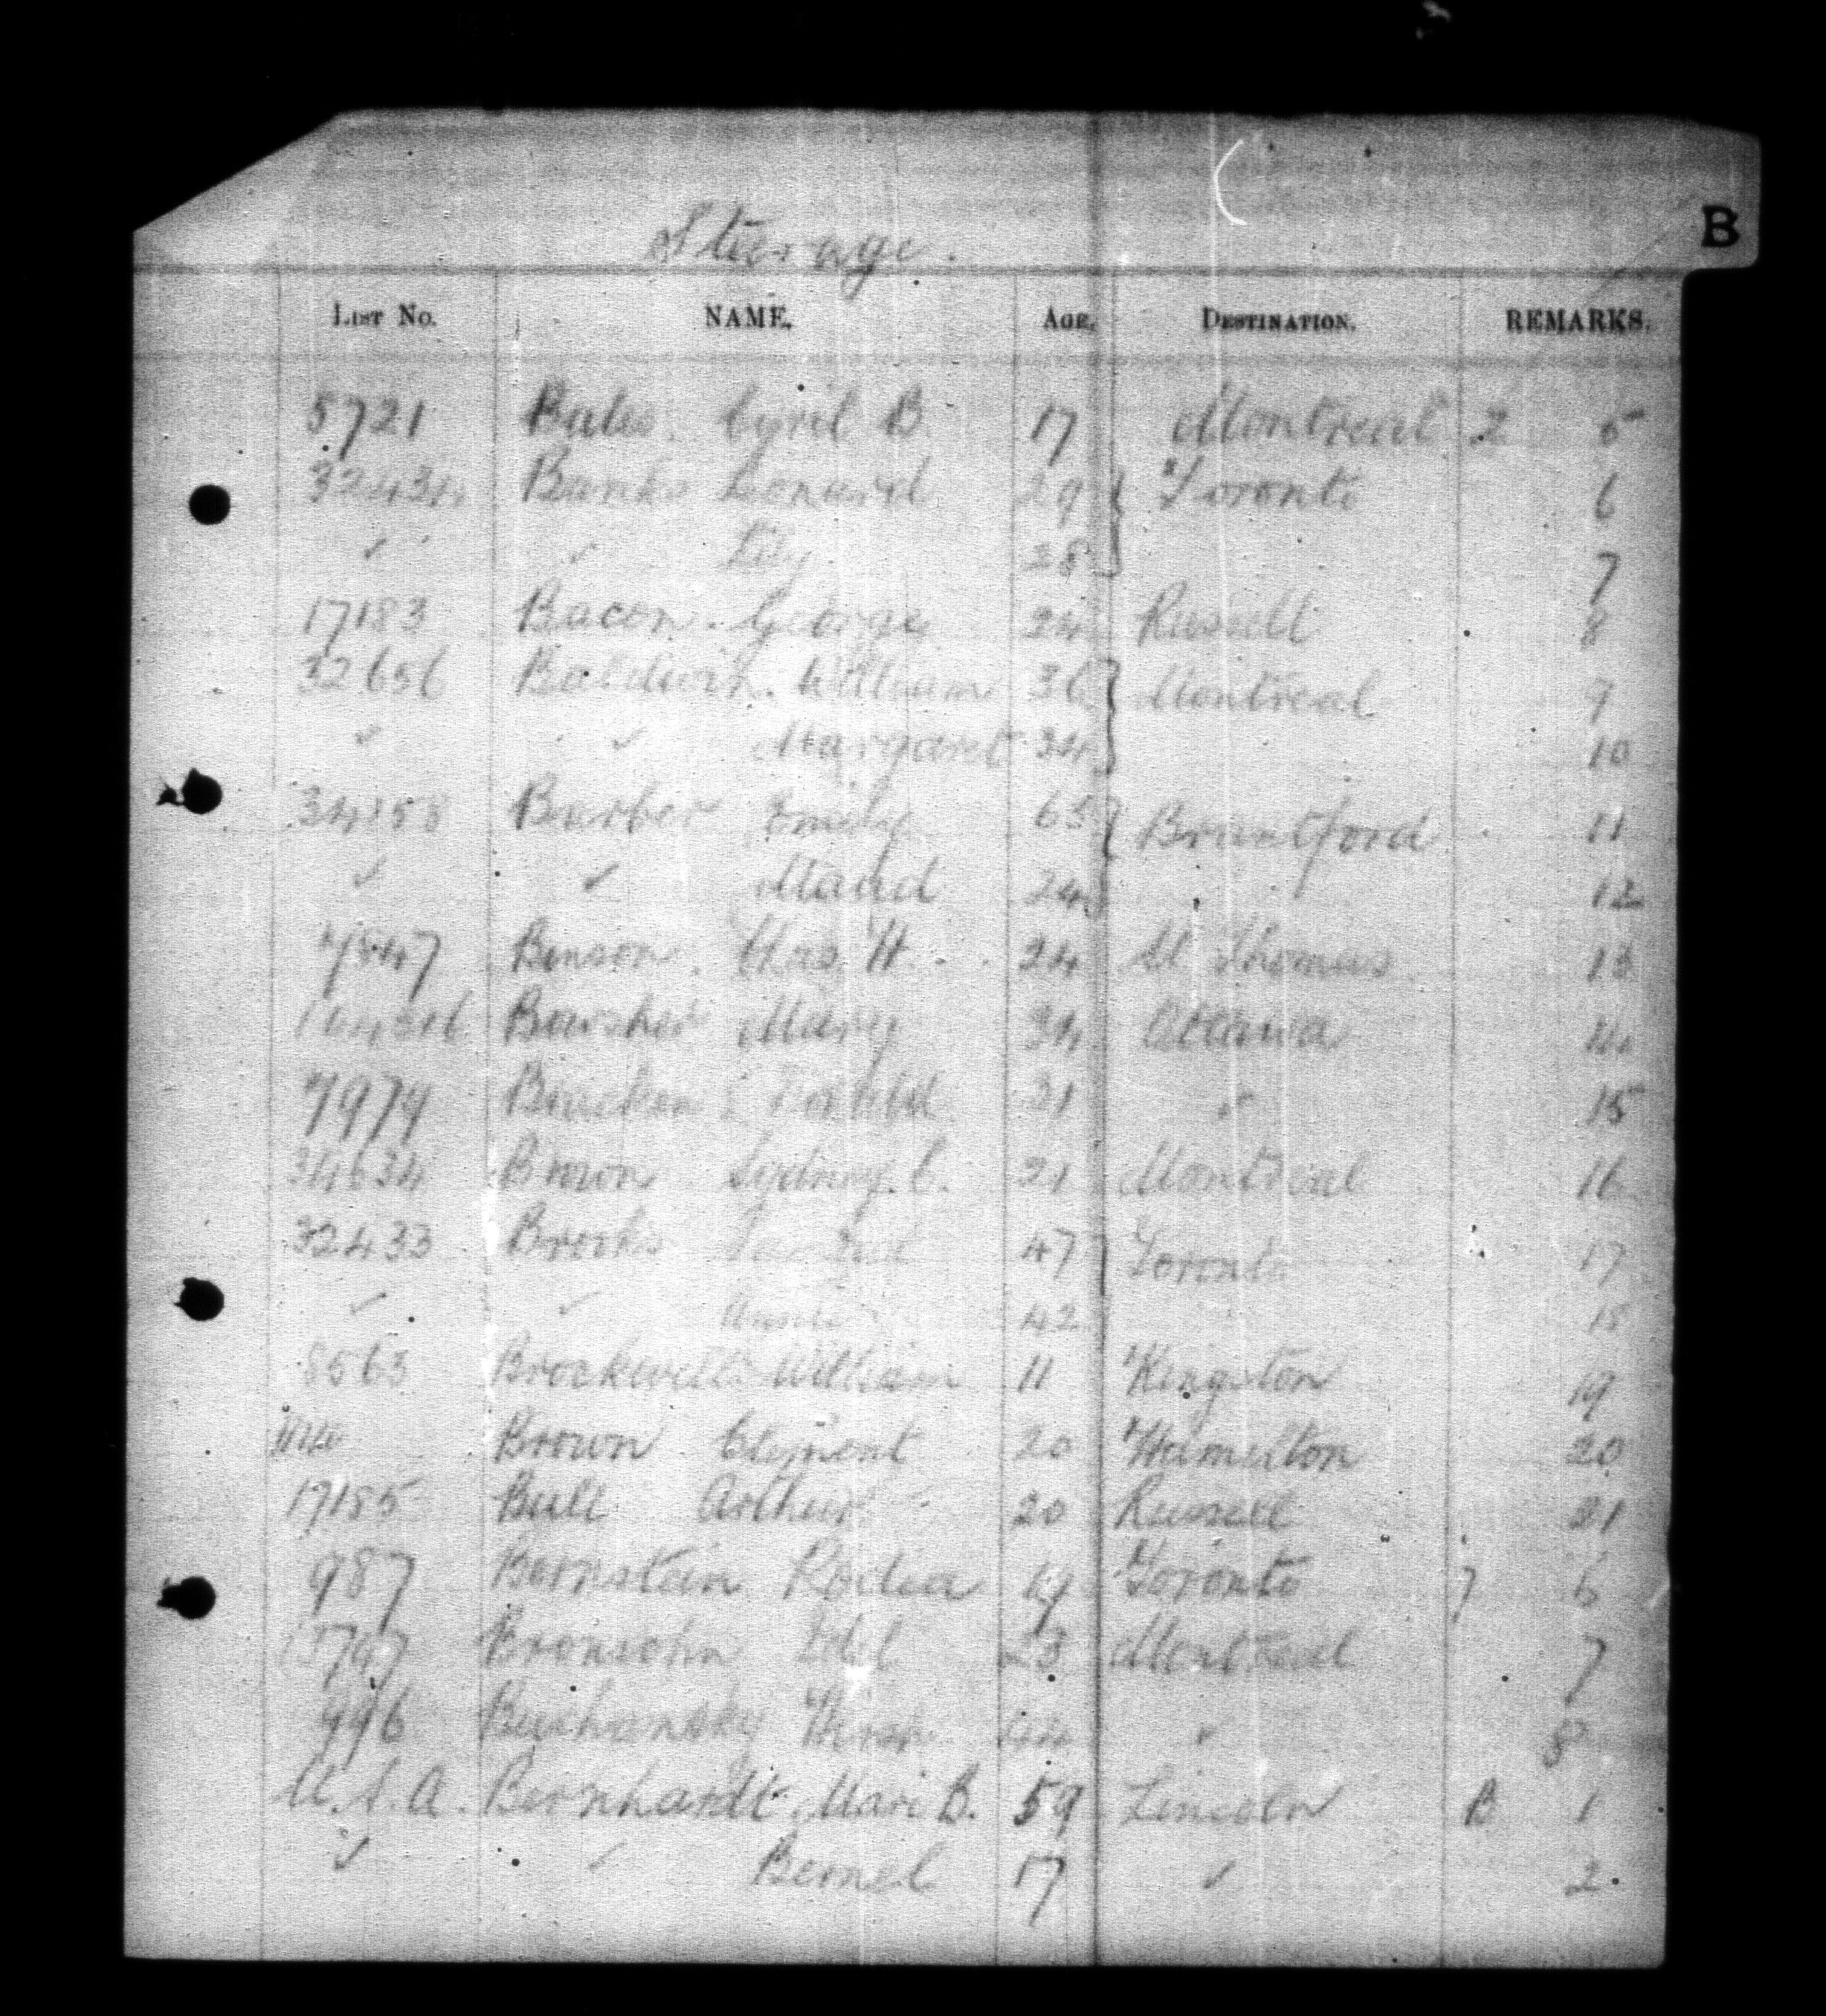 B
Steerage.
List No. NAME. Age. Destination. REMARKS.
5721 Bates. Cyril B. 17 Montreal 2 5
32434 Banks Leonard 29 Toronto 6
✓ ✓ Lily 28 7
17183 Bacon. George 24 Russell 8
32656 Baldwin. William 36 Montreal 9
✓ ✓ Margaret 34 10
34158 Barber Emily 65 Brantford 11
✓ ✓ Maud 24 12
7847 Benson. Chas. H. 24 St Thomas 13
Bowsher Mary 34 Ottawa 14
7979 Bracken 21 ✓ 15
34634 Brown Sydney. C. 21 Montreal 16
32433 Brooks 47 Toronto 17
✓ ✓ Annie 42 18
8563 Brockwell William 11 Kingston 19
Brown Clement 20 Hamilton 20
17185 Bull Arthur 20 Russell 21
987 Bernstein 19 Toronto 7 6
Bronsohn 23 Montreal 7
996 Buchansky Hirsh 44 ✓ 8
U.S.A. Bernhardt. Mari B. 59 Lincoln B 1
✓ ✓ 17 ✓ 2